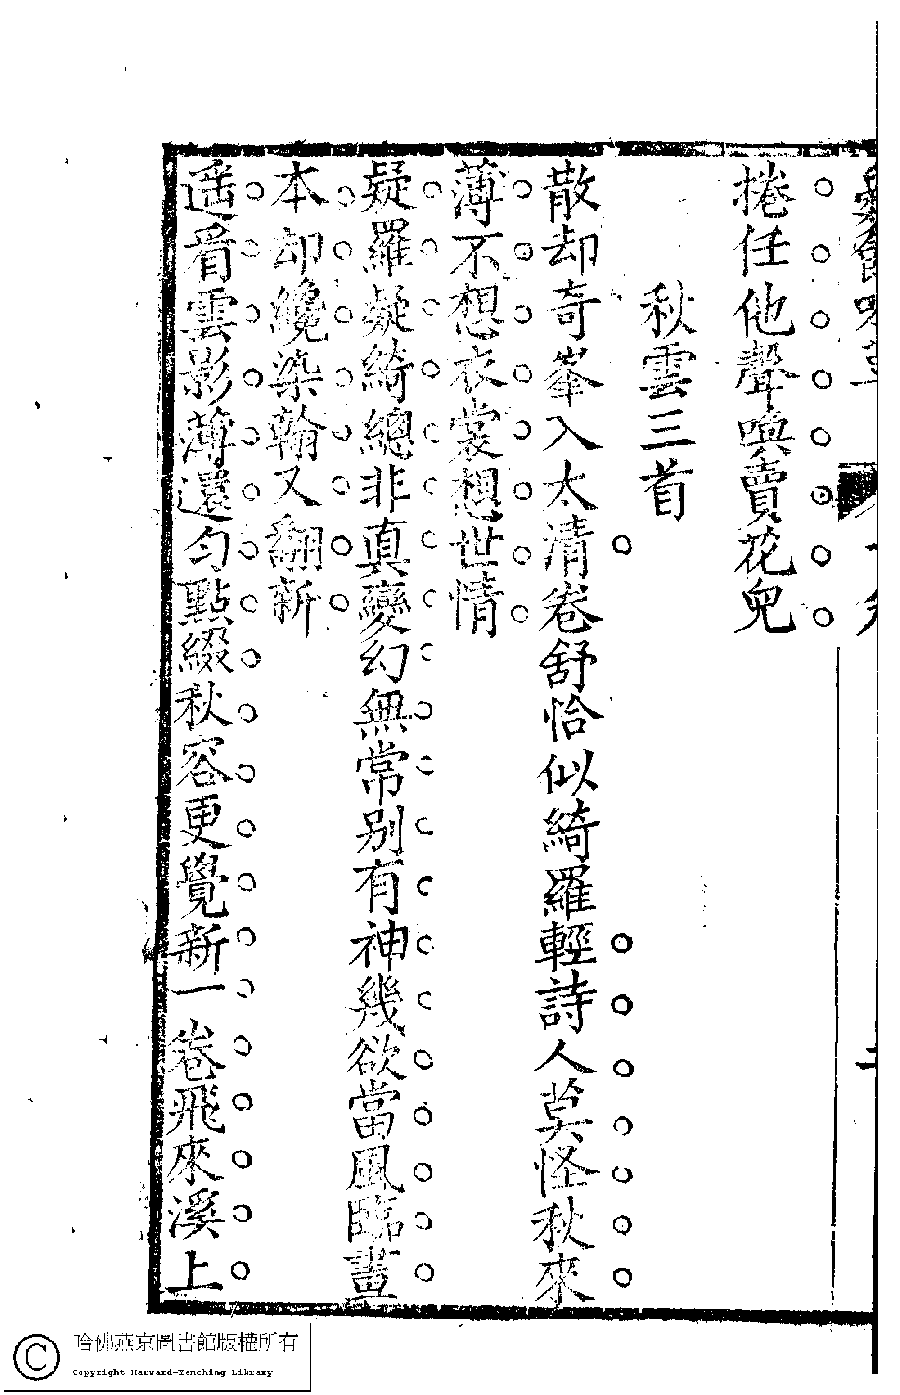 捲任他聲喚賣花兒
秋雲三首
散却奇峯入太清卷舒恰似綺羅輕詩人莫怪秋來
薄不想衣裳想世情
疑羅疑綺總非真變幻無常别有神幾欲當風臨畫
本却纔染翰又翻新
遥看雲影薄還勻點綴秋容更覺新一卷飛來溪上
哈佛燕京圖書館版權所有
Copyright Harvard-Yenching Library